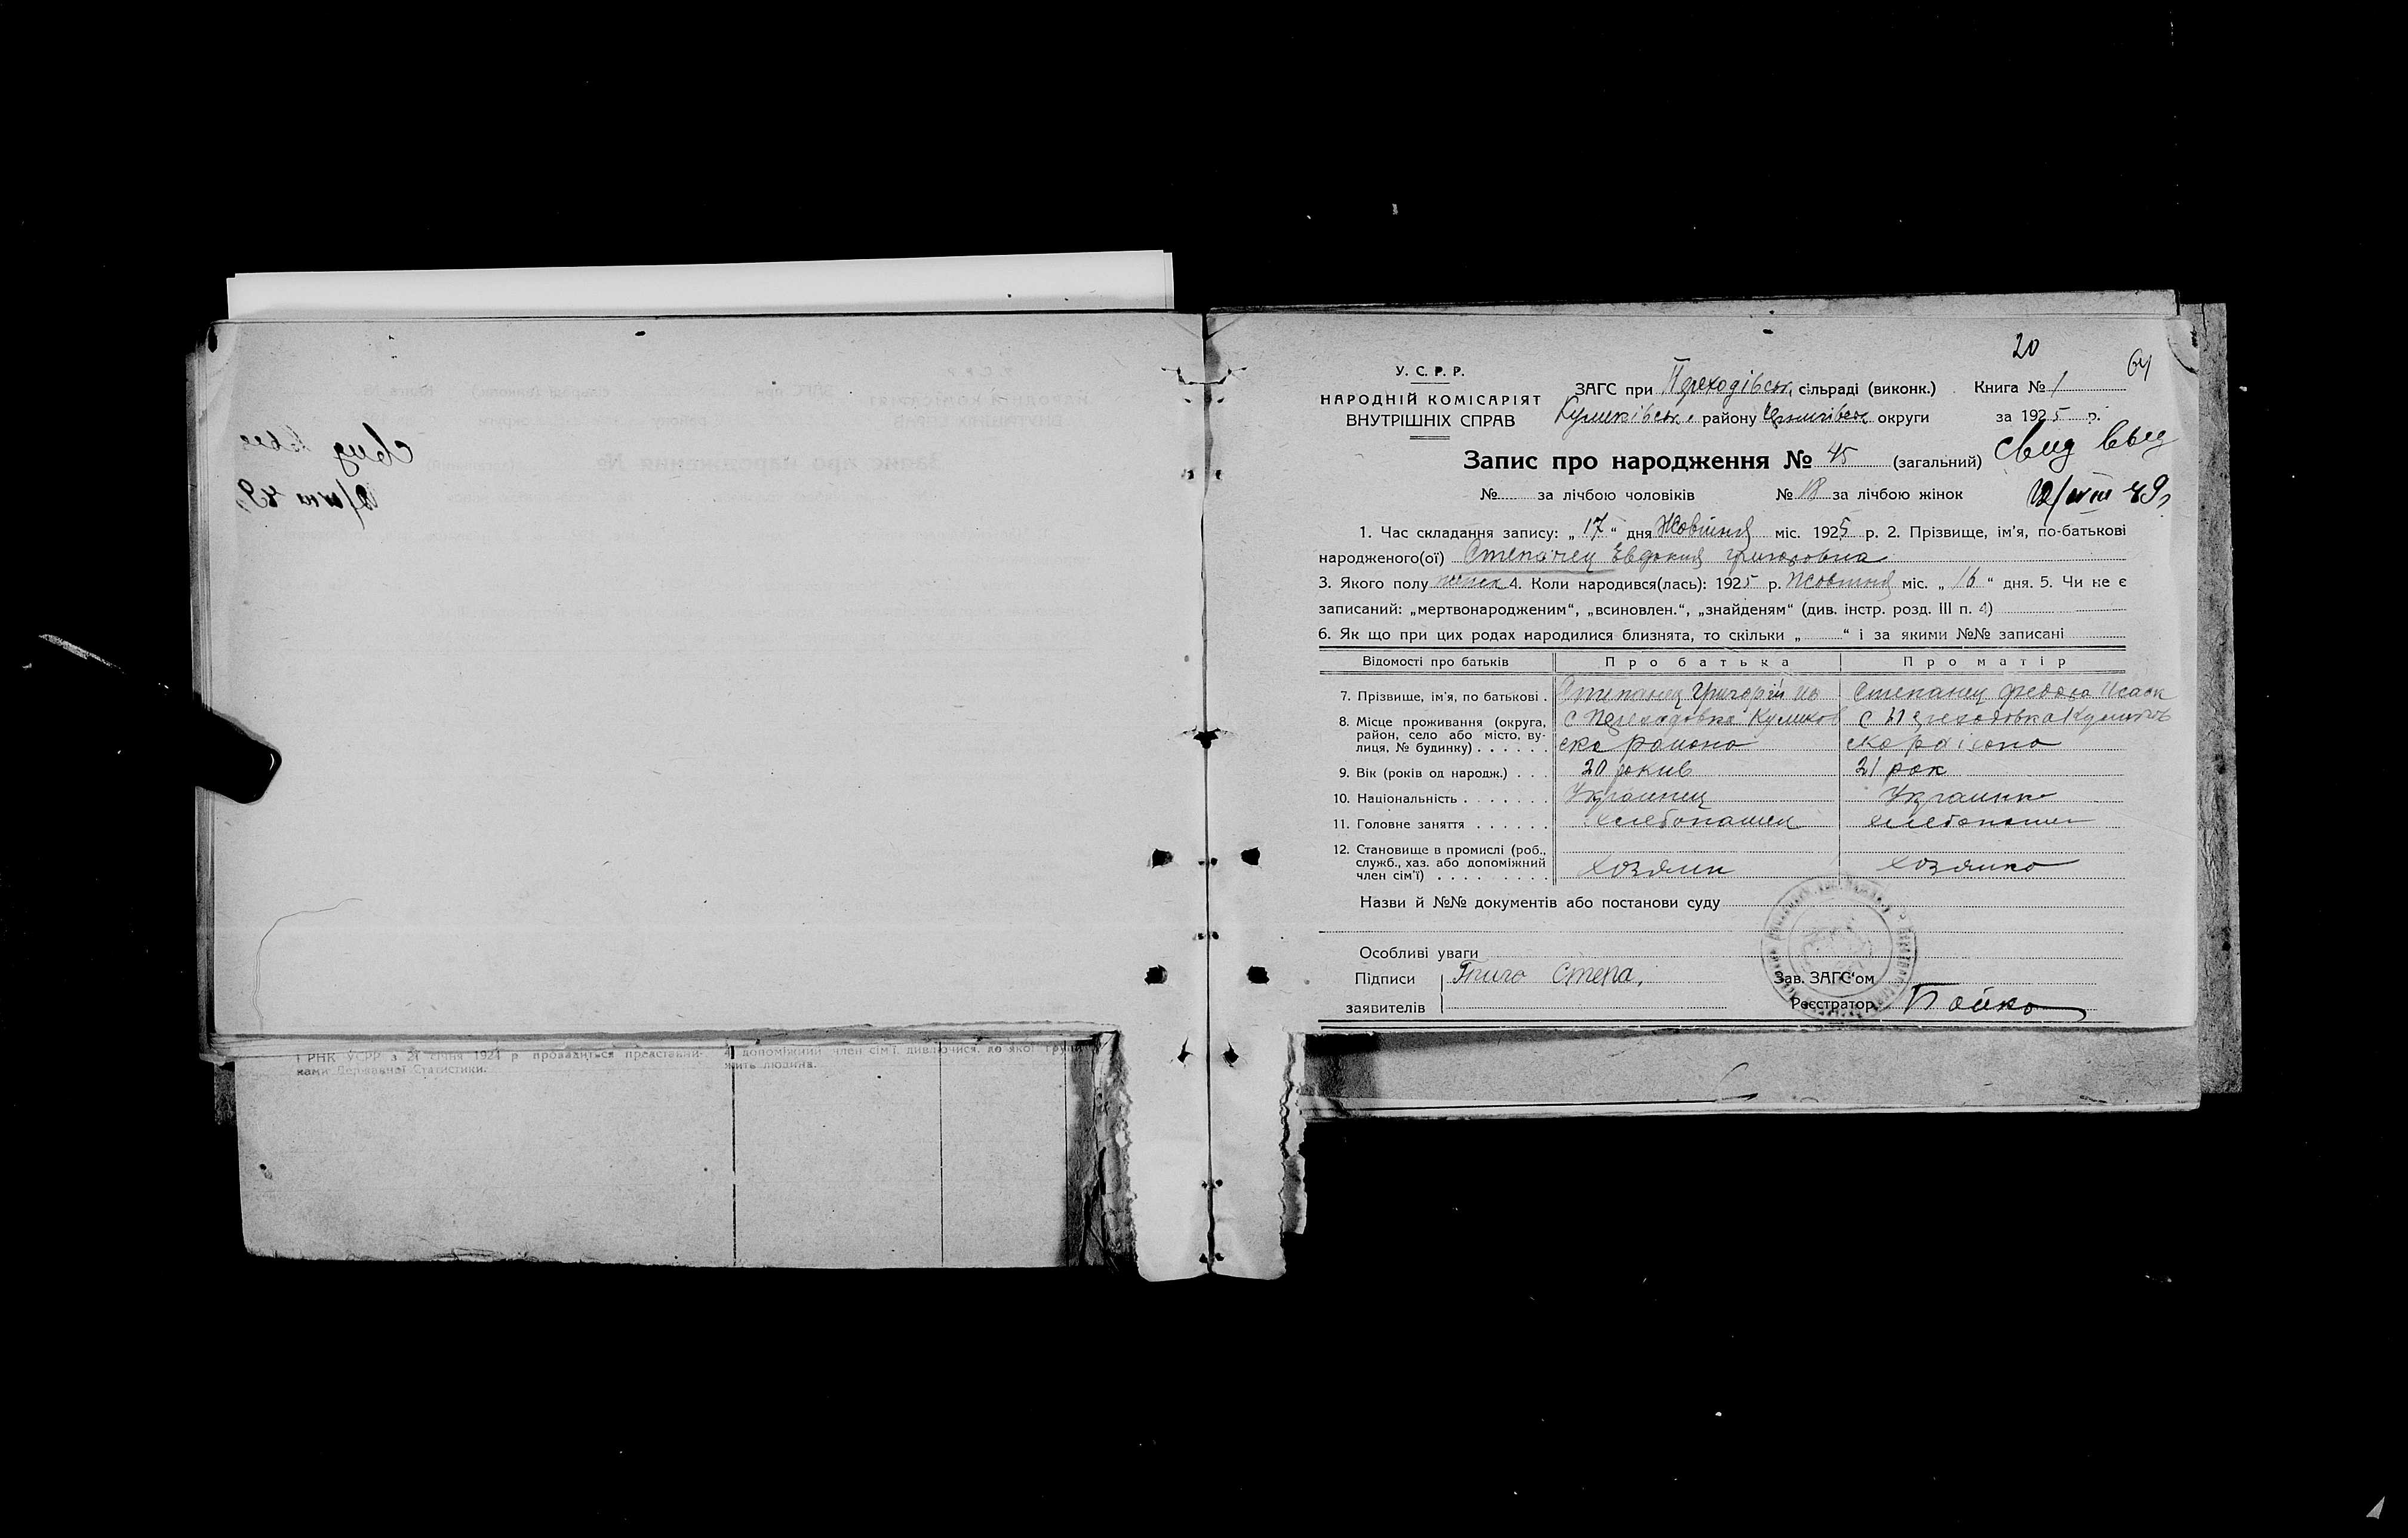 20
64
У. С. Р. Р.
НАРОДНІЙ КОМІСАРІЯТ
ВНУТРІШНІХ СПРАВ
ЗАГС при Переходівськ. сільраді (виконк.) Книга № 1
Куликівськ. району округи за 1925 р.
Запис про народження № 45 (загальний)
свид выд
№ за лічбою чоловіків № 18 за лічбою жінок
12/VIII 49 г
1. Час складання запису: „17“ дня Жовтня міс. 1925 р. 2. Прізвище, ім'я, по-батькові
народженого(ої) Степанец Евдокия Григоровна
3. Якого полу 4. Коли народився(лась): 1925 р. Жовтня міс. „16“ дня. 5. Чи не є
записаний: „мертвонародженим“, „всиновлен.“, „знайденям“ (див. інстр. розд. III п. 4)
6. Як що при цих родах народилися близнята, то скільки „ “ і за якими №№ записані
Відомості про батьків Про батька Про матір
7. Прізвище, ім'я, по батькові . Степанец Григорій Ив Степанец Исаак
8. Місце проживання (округа, с Переходовка Куликов с Переходовка Куликов
район, село або місто, ву-
лиця, № будинку) . . . . . . ско района ско района
9. Вік (років од народж.) . . . 20 рокив 21 рок
10. Національність . . . . . . . Украинец Украинка
11. Головне заняття . . . . . . хлебопашец хлебопашец
12. Становище в промислі (роб.,
служб., хаз. або допоміжний
член сім'ї) . . . . . . . . . хозяин хозяика
Назви й №№ документів або постанови суду
Особливі уваги
Підписи Степа, Зав. ЗАГС'ом
заявителів Реєстратор Бойко
і РНК УСРР з 21 січня 1924 р провадиться представни-
ками Державної Статистики.
4) допоміжний член сім'ї, дивлючися, до якої групи
жить людина.